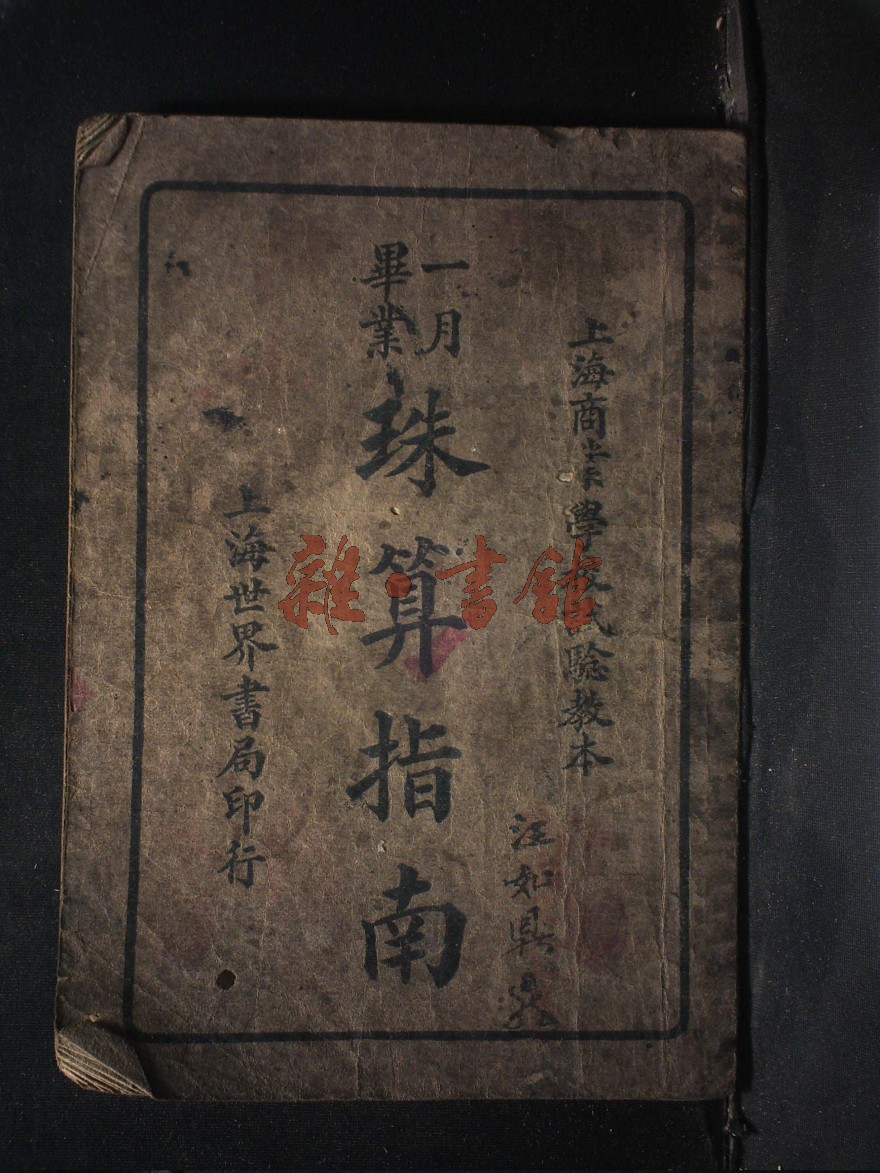 上海商業學校試驗教本
一月
畢業
珠算指南
上海世界書局印行
汪如
雜·書館